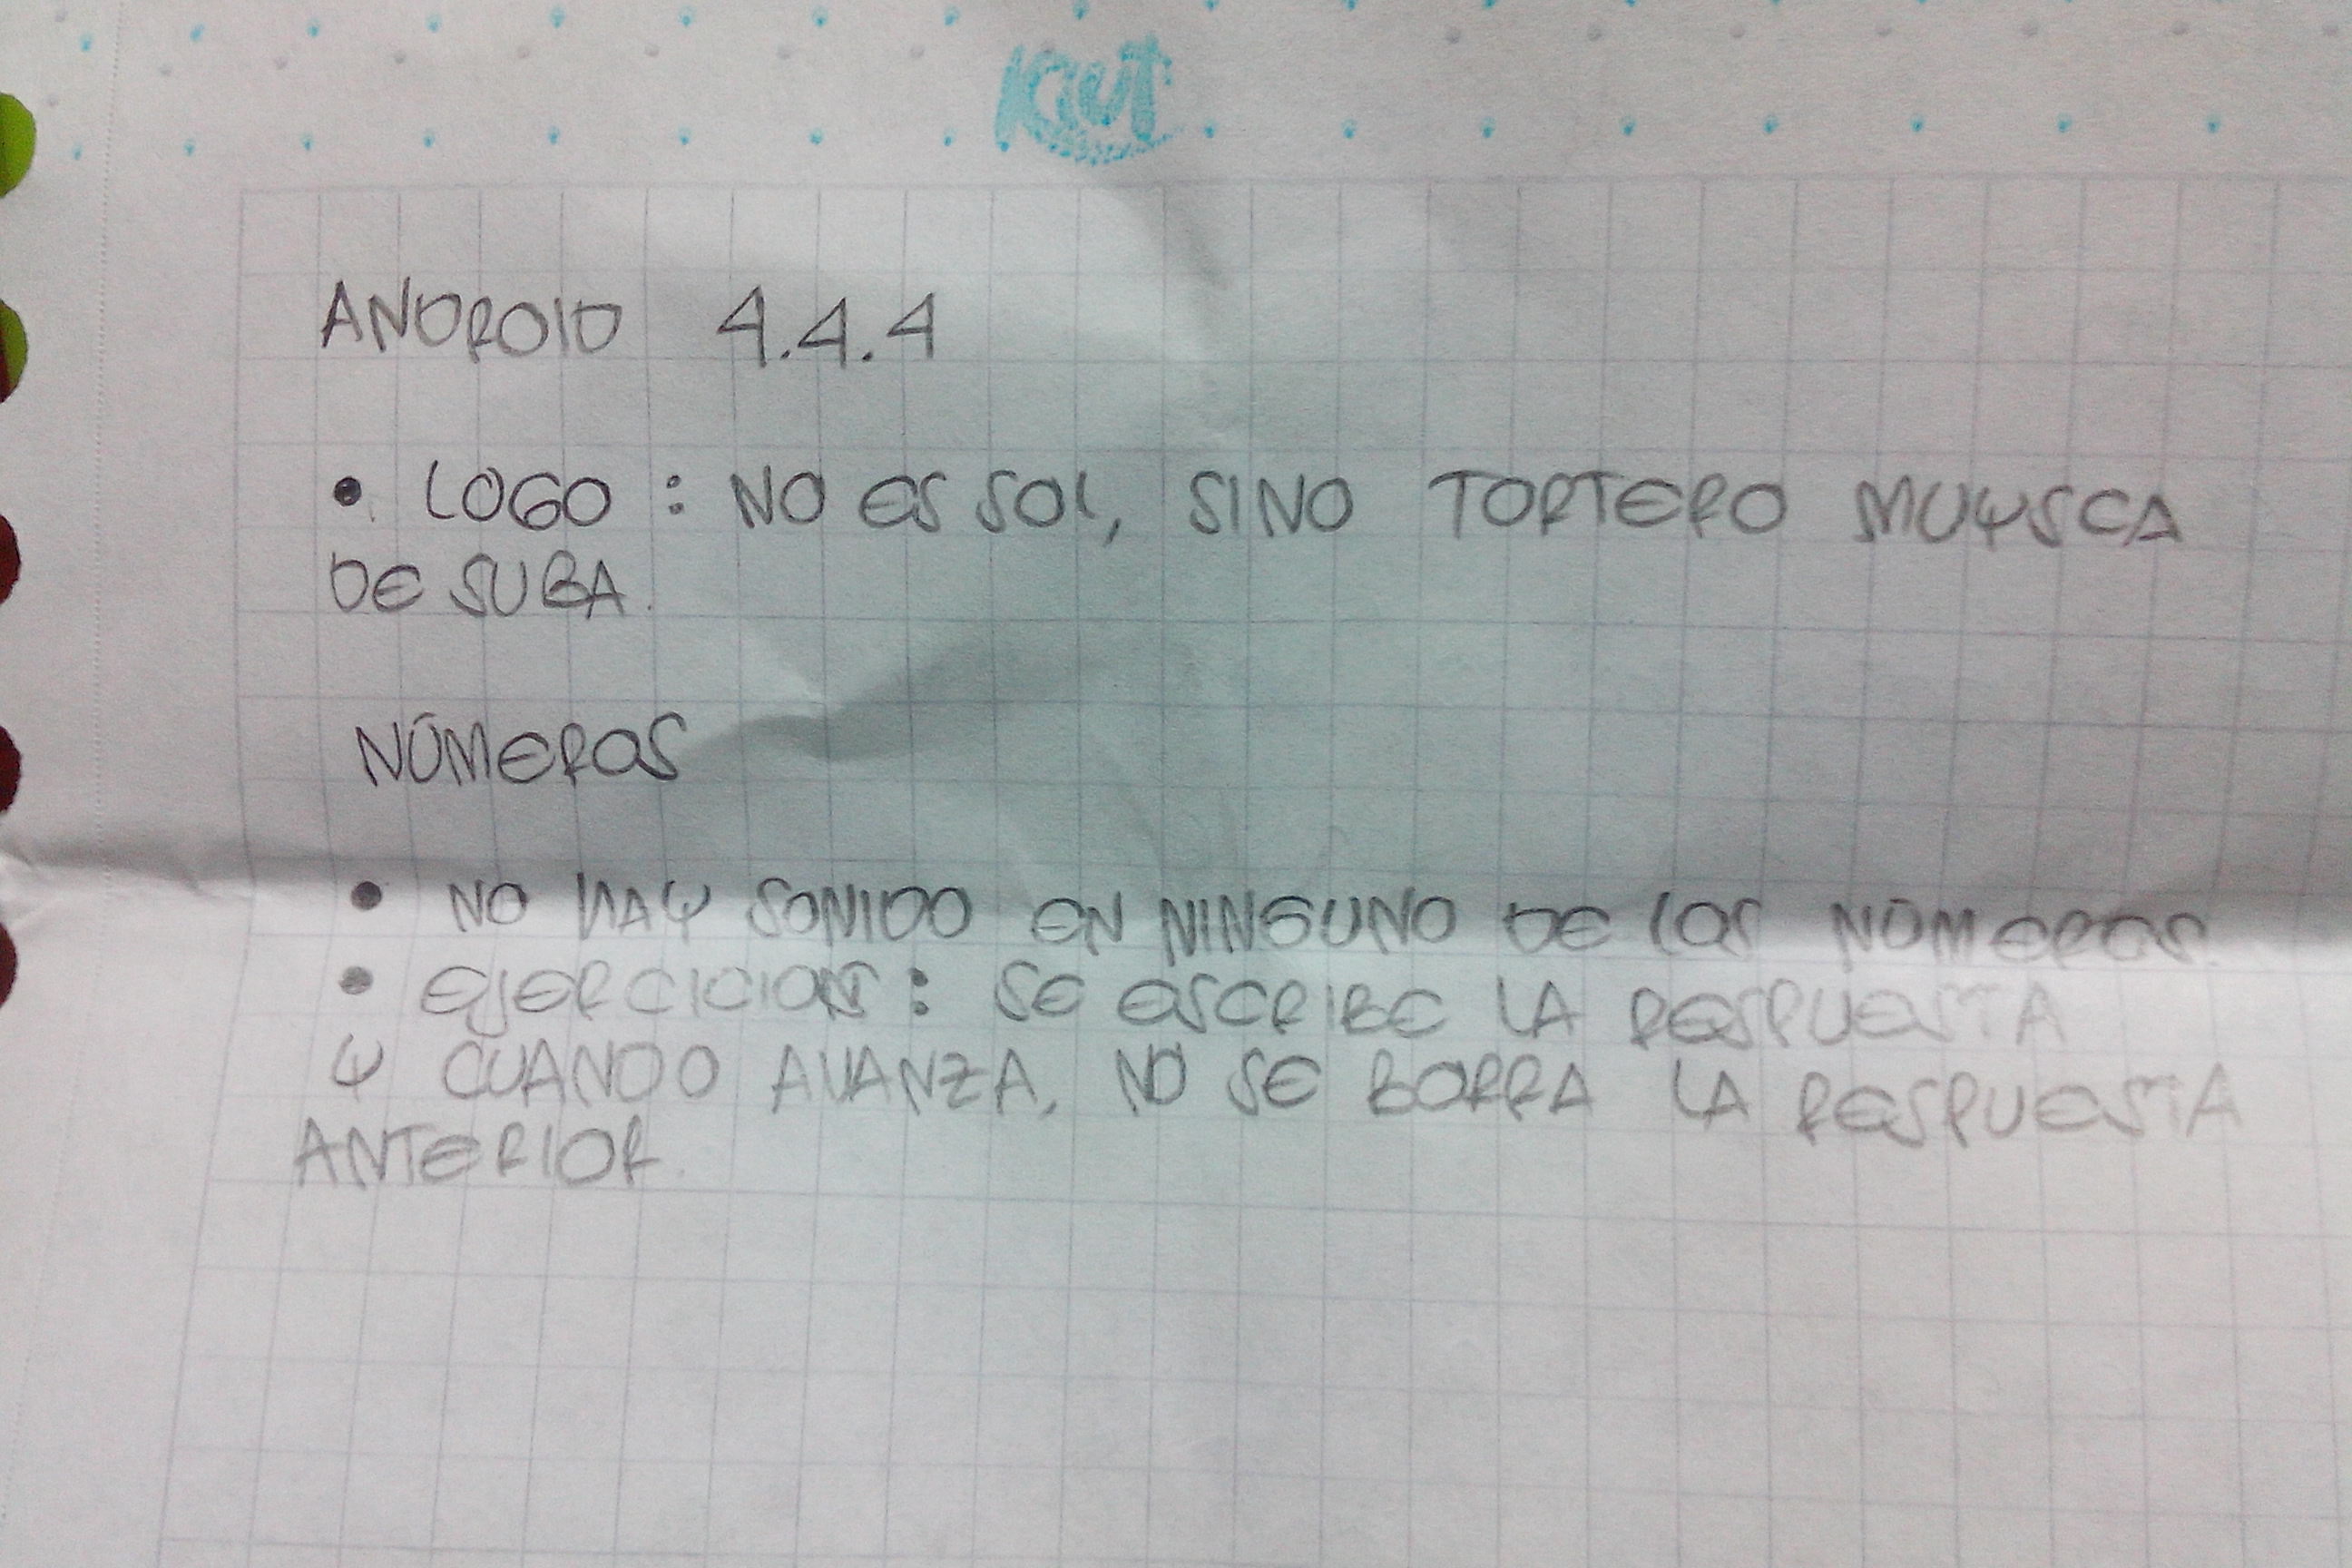 Kiut
ANDROID 4.4.4
• LOGO : NO ES SOL, SINO TORTERO MUYSCA
DE SUBA.
NÚMEROS
• NO HAY SONIDO EN NINGUNO DE LOS NÚMEROS.
• EJERCICIOS : SE ESCRIBE LA RESPUESTA
Y CUANDO AVANZA, NO SE BORRA LA RESPUESTA
ANTERIOR.